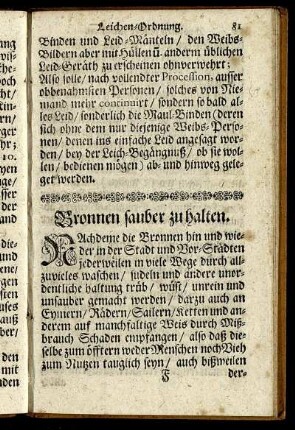 Leichen-Ordnung. 81
Binden und Leid-Mänteln / den Weibs-
Bildern aber mit Hüllen ů. anderm üblichen
Leid-Geräth zu erscheinen ohnverwehrt;
Also solle / nach vollendter Procession, ausser
obbenahmsten Personen / solches von Nie-
mand mehr continuirt / sondern so bald al-
les Leid / sonderlich die Maul-Binden (deren
sich ohne dem nur diejenige Weibs-Perso-
nen / denen ins einfache Leid angesagt wor-
den / bey der Leich-Begängnuß / ob sie wol-
len / bedienen mögen) ab- und hinweg gele-
get werden.
Bronnen sauber zu halten.
NAchdeme die Bronnen hin und wie-
der in der Stadt und Vor-Städten
jederweilen in viele Wege durch all-
zuvieles waschen / sudeln und andere unor-
dentliche haltung trüb / wüst / unrein und
unsauber gemacht werden / darzu auch an
Eymern / Rädern / Sailern / Ketten und an-
derem auf manchfaltige Weis durch Miß-
brauch Schaden empfangen / also daß die-
selbe zum öfftern weder Menschen noch Vieh
zum Nutzen tauglich seyn / auch bißweilen
F der-